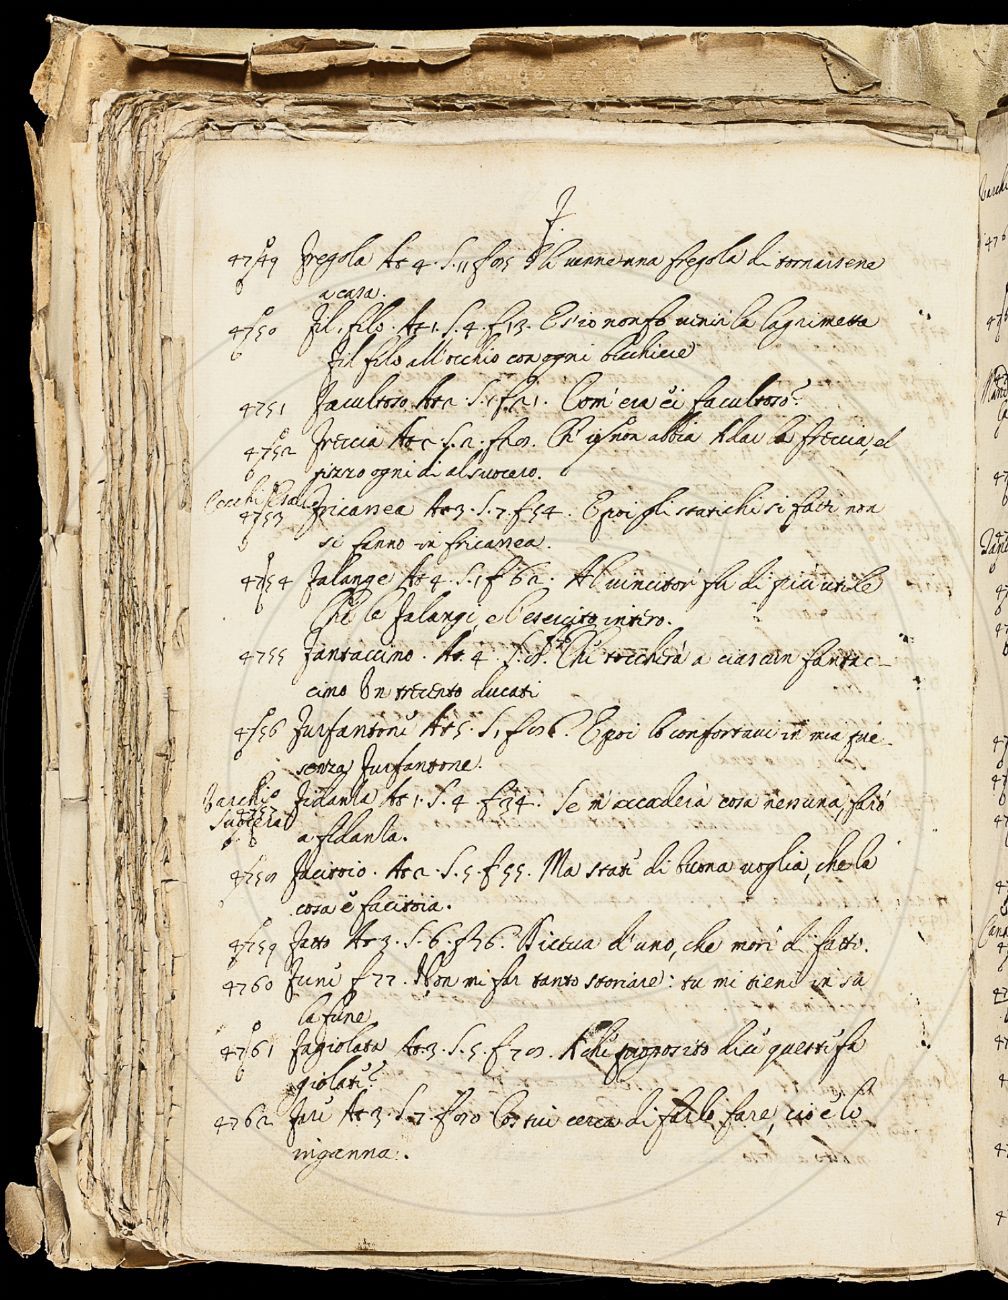 F.
4749 Fregola At 4. S. 11 f 95 Gli venne una fregola di tornarsene
a casa.
4750 Fil filo. At 1. S. 4. f 13. Es'io non fo venir la lagrimetta
fil filo all'occhio con ogni bicchiere
4751 Facultoso At 2 S. 1 f 21. Com'era ei facultoso?
4752 Freccia At 2. S. 2. f 29. abbia A dar la freccia, el
pizzo ogni dì al suocero.
4753 Fricassea At 3. S. 7. f 54. E poi gli statichi si fatti non
si fanno in fricassea.
4754 Falange At 4. S. 1 f 62. Al vincitor fu di più utile
Che le Falangi, e l'esercito intiro.
4755 Fantaccino. At. 4. S. 8. Chi toccherà a ciascun fantac-
cino Un trecento ducati
4756 Furfantone At 5. S. 1 f 96. E poi lo confortavi in mia pre-
senza Furfantone.
4757 Fidanza At 1. S. 4. f 34. Se n'accaderà cosa nessuna, farò
Suocera
a fidanza.
4758 Facitoio. At 2. S. 5. f 55. Ma state di buona voglia, che la
cosa è facitoia.
4759 Fatto At 3. S. 6. f 76. d'uno, che morì di fatto.
4760 Fune f 77. Non mi far tanto storiare: tu mi tieni in su
la fune
4761 Fagiolata At 3. S. 5. f 79. A che proposito dici questi fa
giolate?
4762 Fare At 3. S. 7. f 90 Costui cerca di farlo fare, cio è lo
inganna.